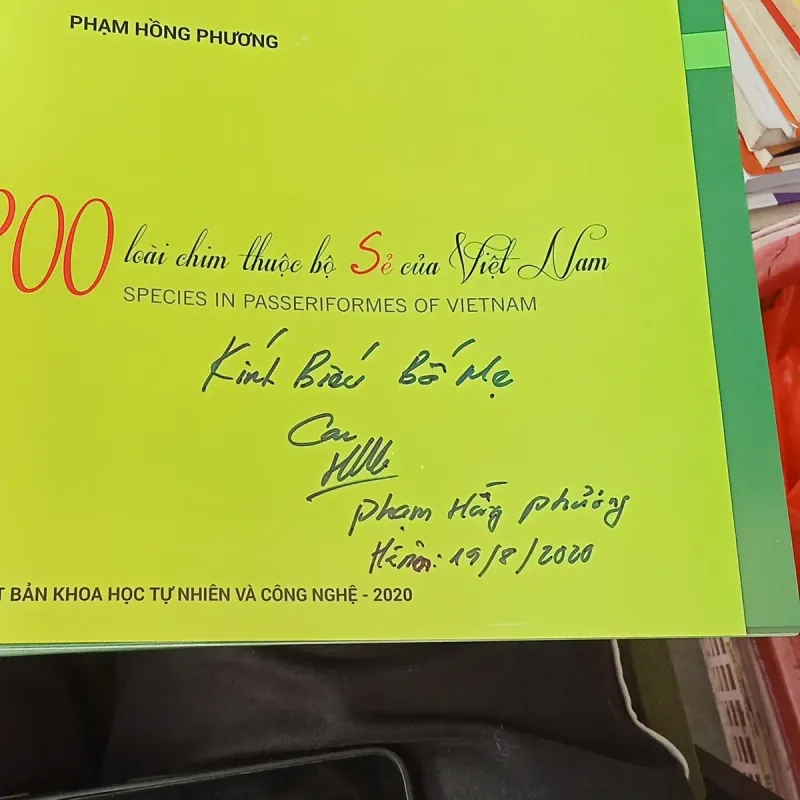 PHẠM HỒNG PHƯƠNG
200 loài chim thuộc bộ Sẻ của Việt Nam
SPECIES IN PASSERIFORMES OF VIETNAM
Kính Biếu bố Mẹ
Con
Phạm Hồng Phương
Hà nội: 19/8/2020
T BẢN KHOA HỌC TỰ NHIÊN VÀ CÔNG NGHỆ - 2020